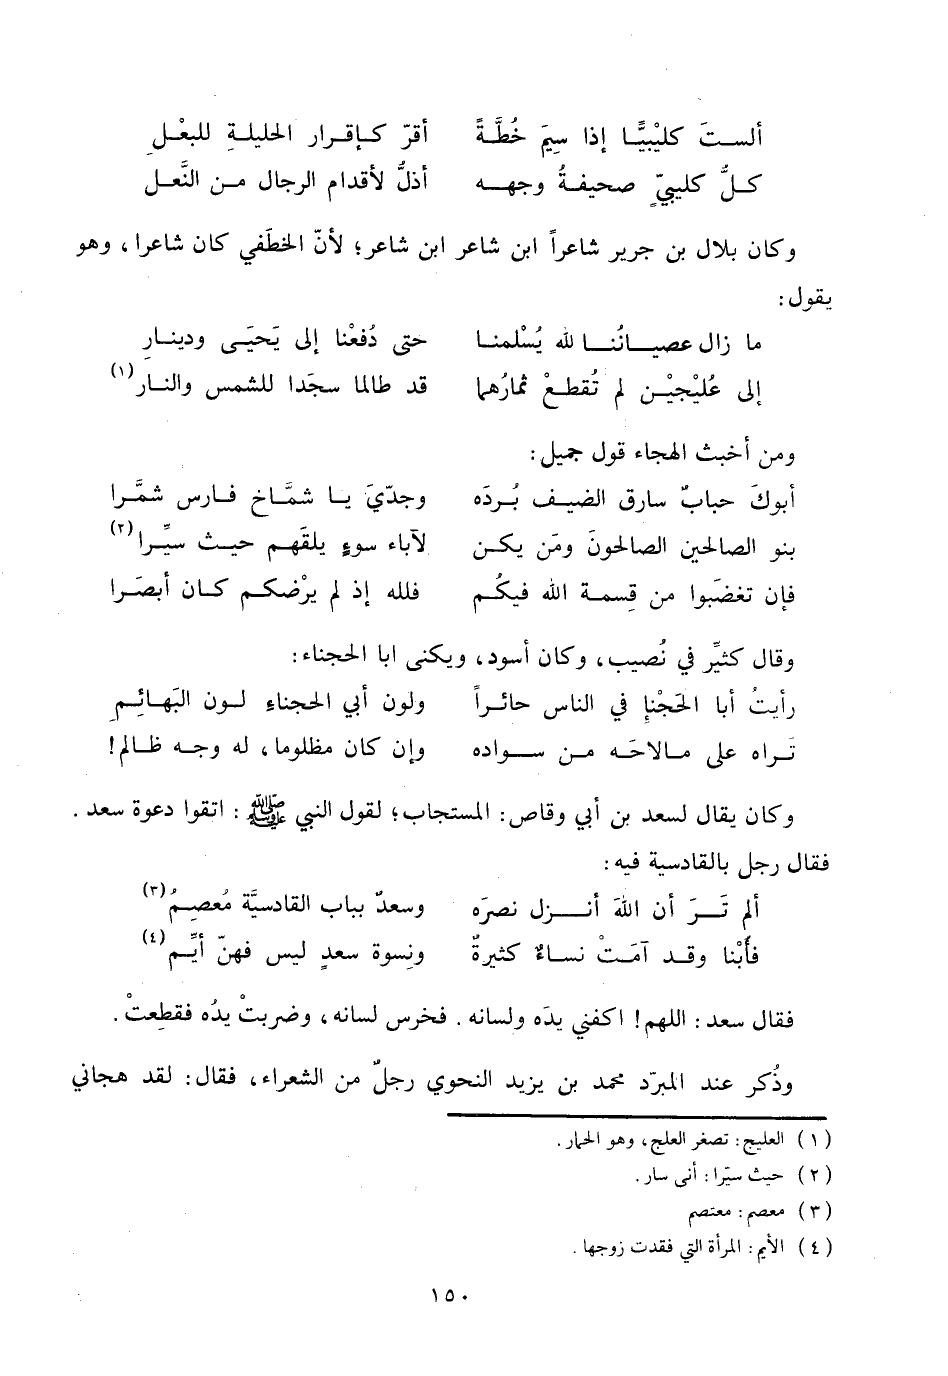 ألستَ كليبيًّا إذا سِيمَ خُطَّةً أقرّ كإقرار الحليلةِ للبعْلِ
كلُّ كليبيٍّ صحيفةُ وجهه أذلُّ لأقدام الرجال من النَّعل
وكان بلال بن جرير شاعراً ابن شاعر ابن شاعر؛ لأنّ الخطَفي كان شاعرا، وهو
يقول:
ما زال عصيانُنا لله يُسْلمنا حتى دُفعْنا إلى يَحيَى ودينارِ
إلى عُليْجيْن لم تُقطعْ ثمارُهما قد طالما سجَدا للشمس والنار(١)
ومن أخبث الهجاء قول جميل:
أبوكَ حبابٌ سارق الضيف بُردَه وجدّيَ يا شمَّاخ فارس شمَّرا
بنو الصالحين الصالحونَ ومَن يكن لآباء سوءٍ يلقَهم حيث سيِّرا(٢)
فإن تغضَبوا من قِسمة الله فيكُم فلله إذ لم يرْضكم كان أبصَرا
وقال كثيِّر في نُصيب، وكان أسود، ويكنى ابا الحجناء:
رأيتُ أبا الحَجْناءِ في الناس حائراً ولون أبي الحجناءِ لون البَهائمِ
تَراه على مالاحَه من سواده وإن كان مظلوما، له وجه ظالم!
وكان يقال لسعد بن أبي وقاص: المستجاب؛ لقول النبي ﷺ: اتقوا دعوة سعد.
فقال رجل بالقادسية فيه:
ألم تَرَ أن اللهَ أنزل نصرَه وسعدٌ بباب القادسيَّة مُعصِمُ(٣)
فأُبْنا وقد آمَتْ نساءٌ كثيرةٌ ونِسوة سعدٍ ليس فهنّ أيِّم(٤)
فقال سعد: اللهم! اكفني يدَه ولسانه. فخرس لسانه، وضربتْ يدُه فقطعتْ.
وذُكر عند المبرّد محمد بن يزيد النحوي رجلٌ من الشعراء، فقال: لقد هجاني
(١) العليج: تصغر العلج، وهو الحمار.
(٢) حيث سيّرا: أنى سار.
(٣) معصم: معتصم
(٤) الأيم: المرأة التي فقدت زوجها.
١٥٠